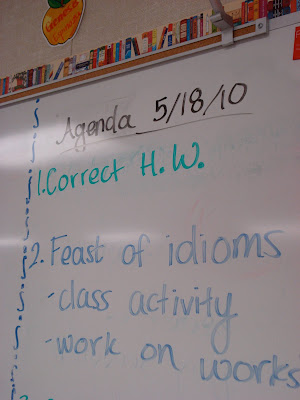 Agenda 5/18/10
1. Correct H.W.
2. Feast of idioms
- class activity
- work on works